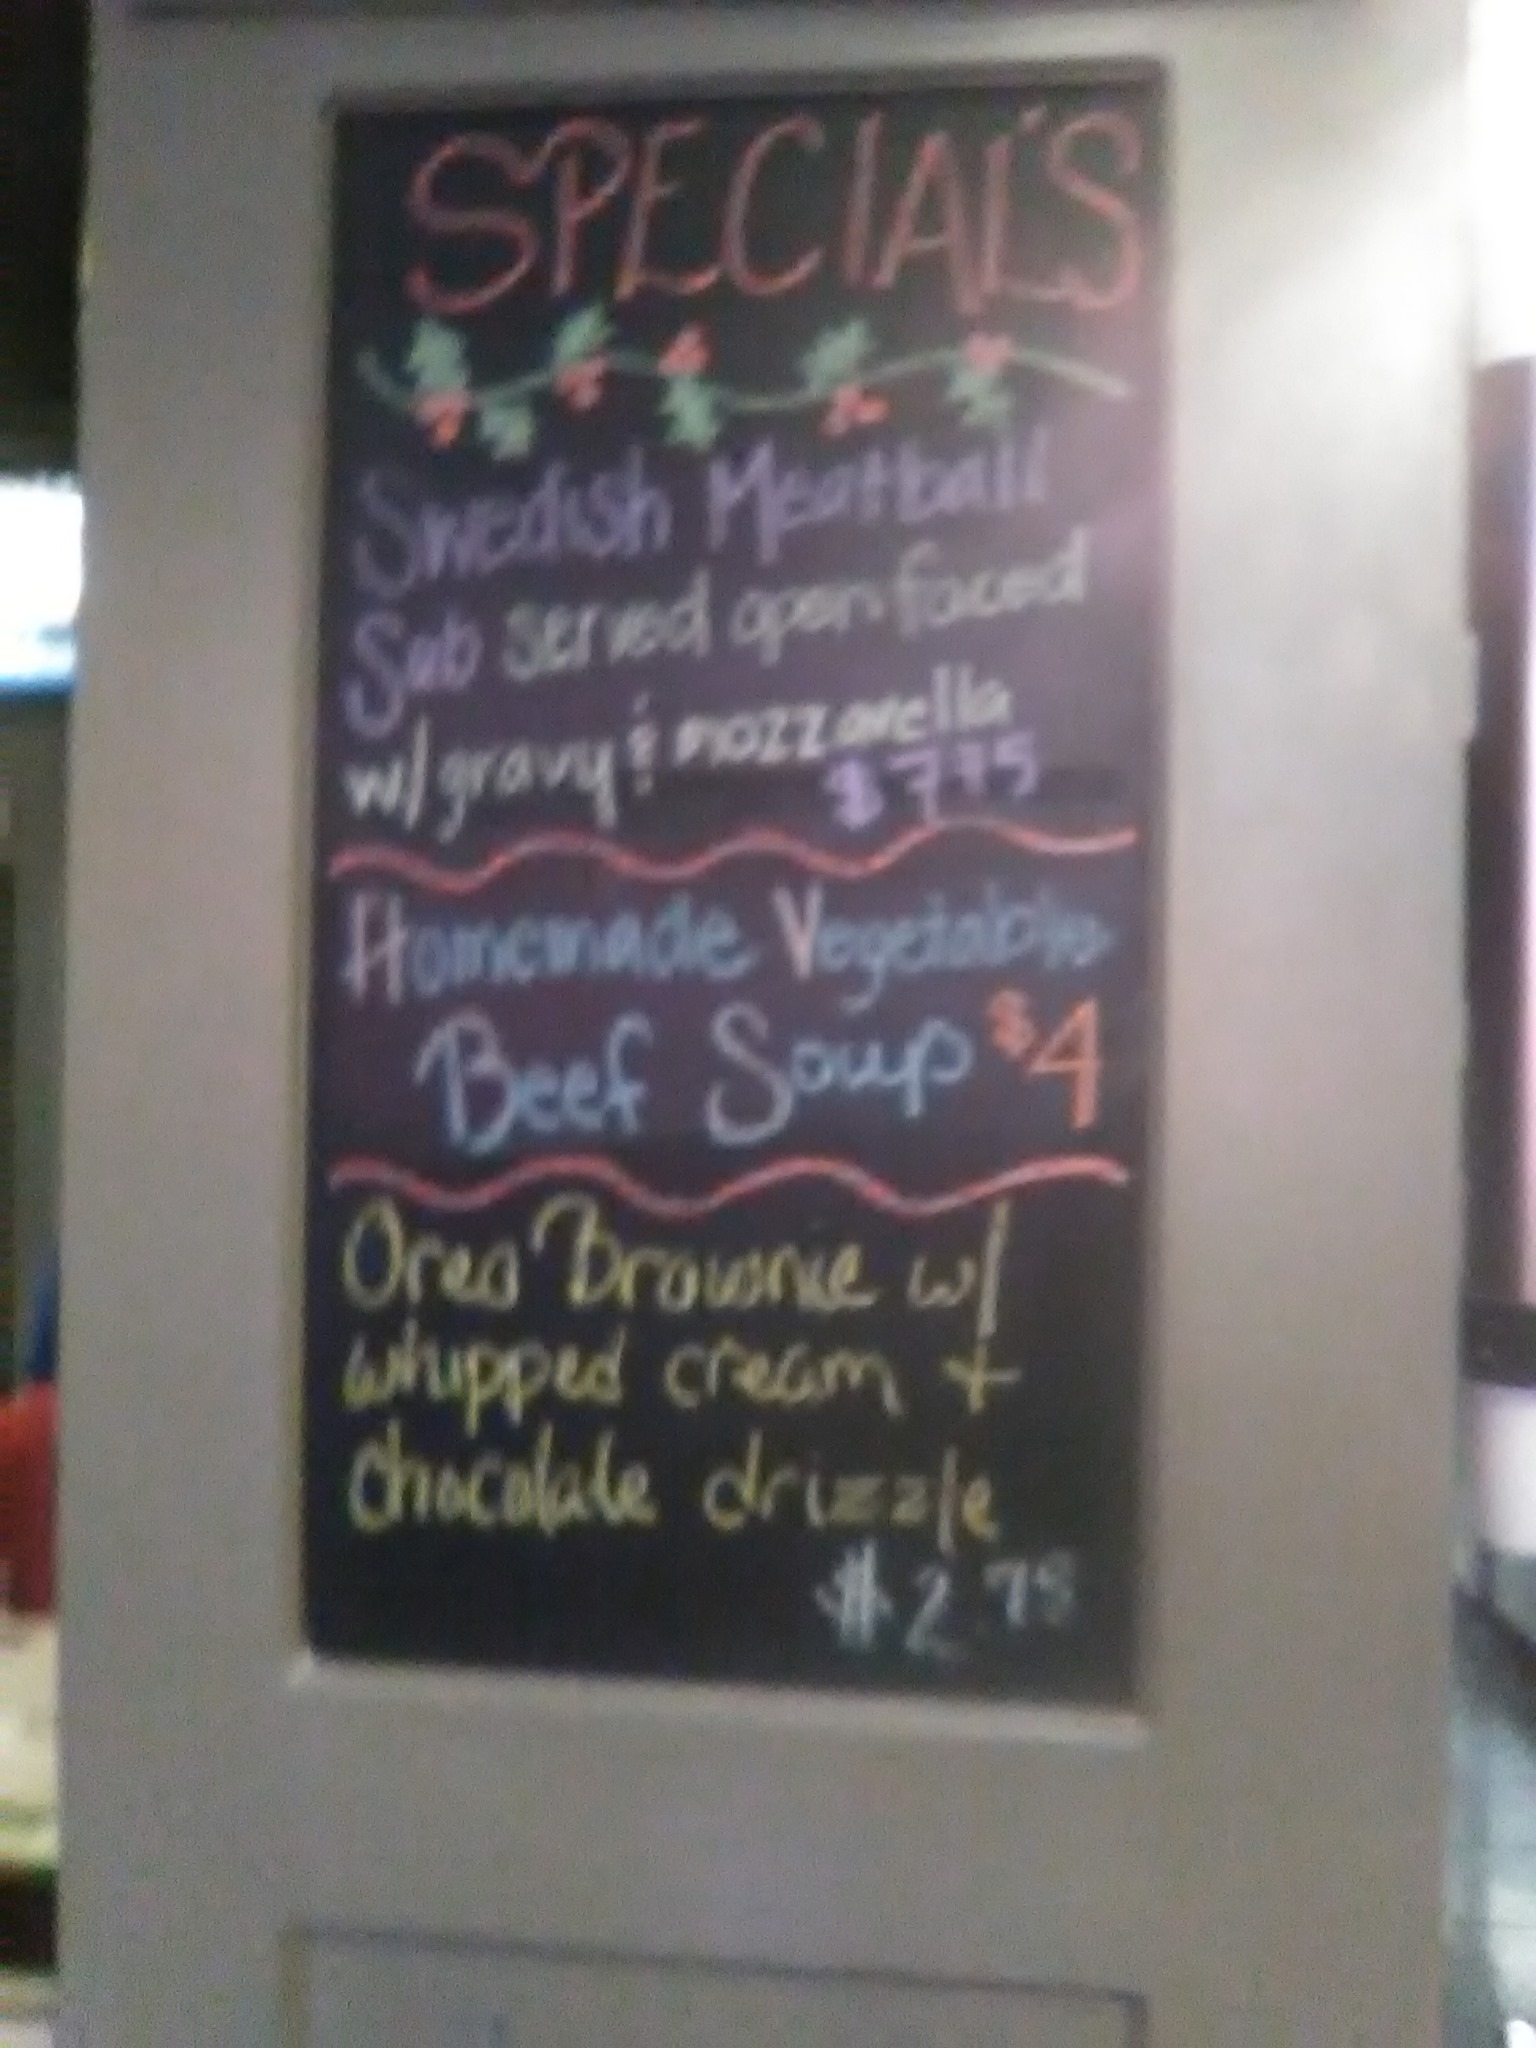 SPECIALS
Swedish Meatball
Sub served open faced
w/ gravy & mozzarella
Homemade Vegetable
Beef Soup $4
Oreo Brownie w/
whipped cream +
chocolate drizzle